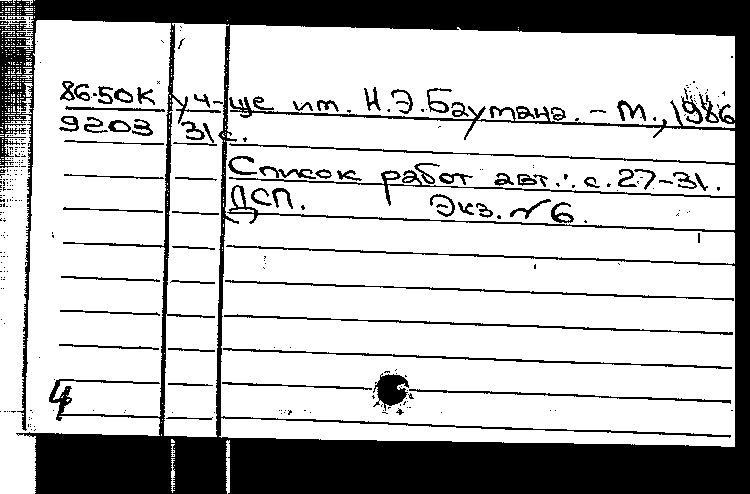 86-50К уч-ще им. Н.Э.Баумана. – М., 1986
9203 31с.
Список работ авт.: с. 27-31.
ДСП. Экз. №6.
4